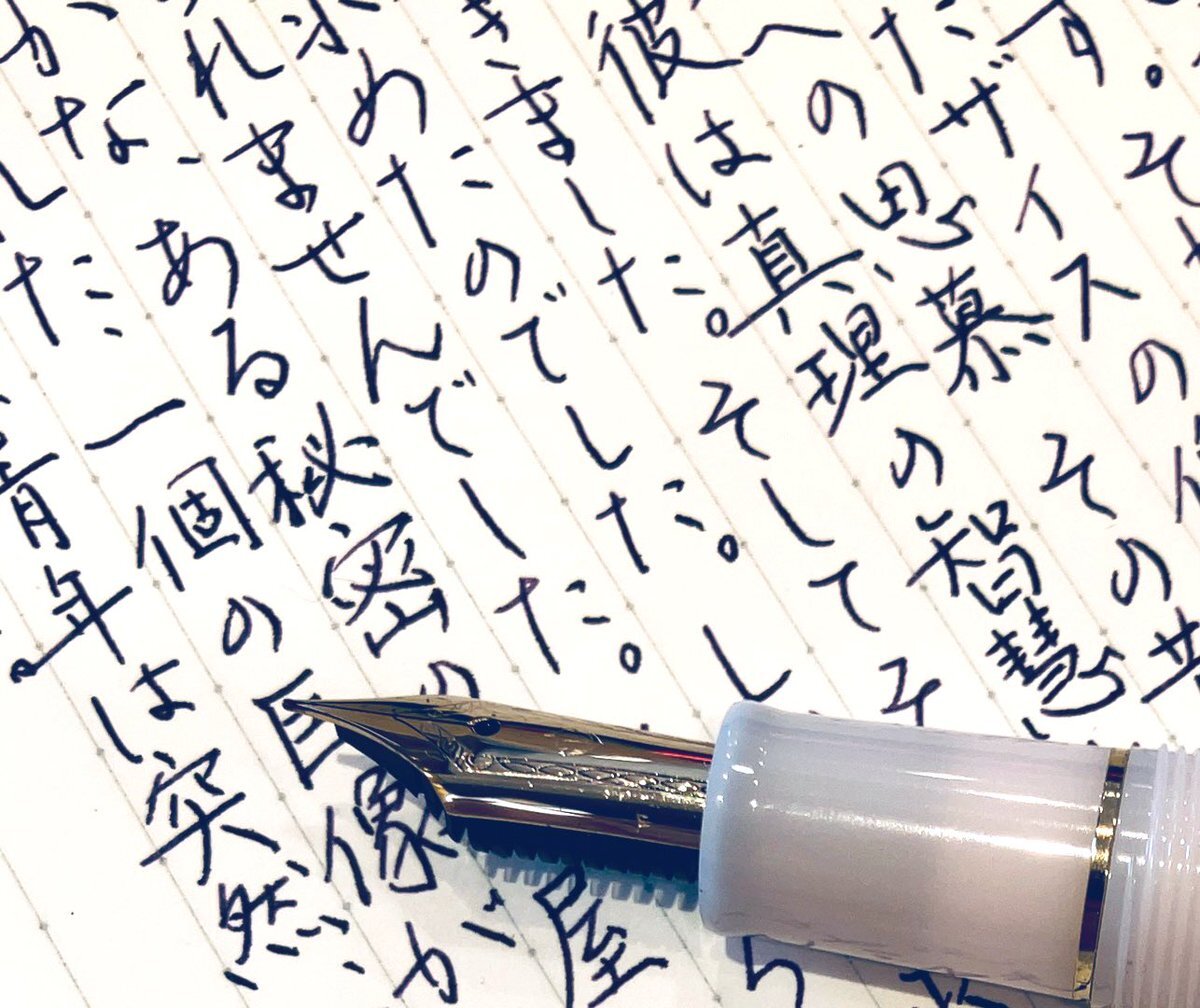 す。そ
たザイスの
への思慕その
彼は真理の智慧
きました。そしてそ
めたのでした。し
れませんでした。
かな、ある秘密の屋
した一個の自像が
青年は突然